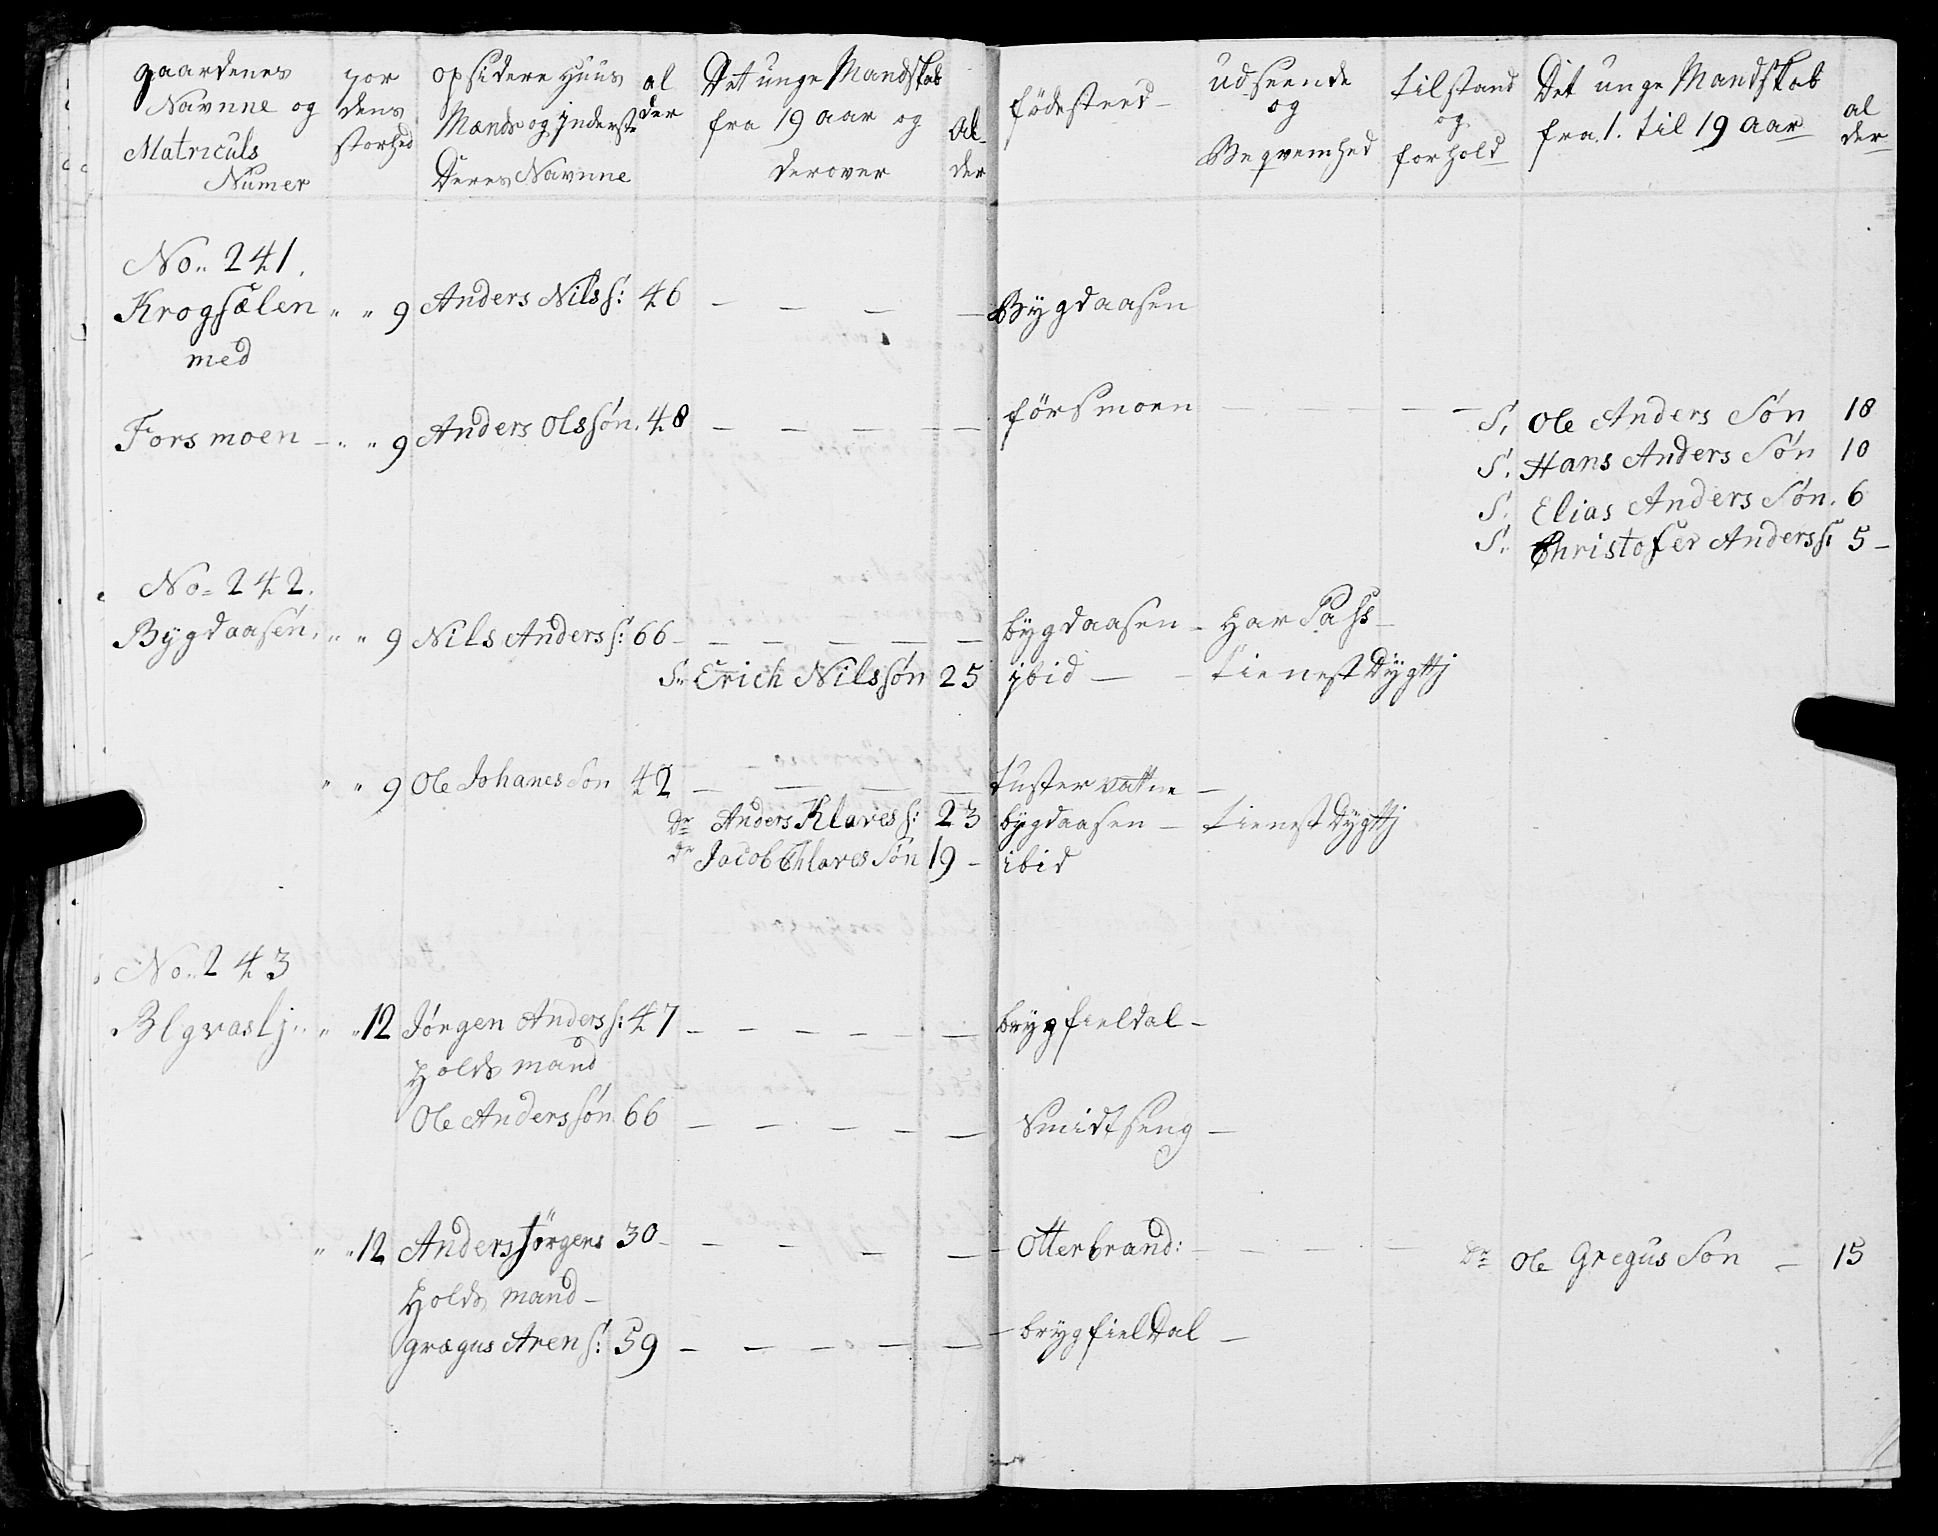 gaardenes Navnne og Matriculs Numer
jor dens storhed
opsidere Huus Mænds og jnderste Deres Navnne
al der
Det unge Mandskab fra 19 aar og derover
Al der
födested
udseende og Beqvemhed
tilstand og forhold
Det unge Mandskab fra 1. til 19 Aar
al der
No.. 241.
Krogsælen " " 9 Anders Nilss: 46 — — — — Bÿgdaasen
med
Forsmoen — " " 9 Anders Olssøn. 48 — — — — — förssmoen — — — — — S. Ole Anders Søn 18
S. Hans Anders Søn 10
S. Elias Anders Søn. 6
S. Christofer Anderss: 5 —
No= 242.
Bÿgdaasen. " " 9 Nils Anderss: 66 — — — — — — bÿgdaasen — har Pass —
S. Erich Nilssøn 25 jbid — — tienestDÿgtj
" " 9 Ole Johanes Søn 42 — — — — tustervattne —
Dr Anders Klaves s: 23 bÿgdaasen — tienestDÿgtj
dr Jacob Chlaves Søn 19 — ibid
No.. 243
Blgvaslj.. " " 12 Jørgen Anderss: 47 — — — — — — brÿgfieldal —
Holds mand
Ole Anderssøn 66 — — — — — Smidtseng —
" " 12 Anders Jörgens 30 — — — — — Otterbrand: — — — — Dr Ole Gregus Søn — 15
Holds mand —
grægus Aren s: 59 — — — — — — brygfielDal —